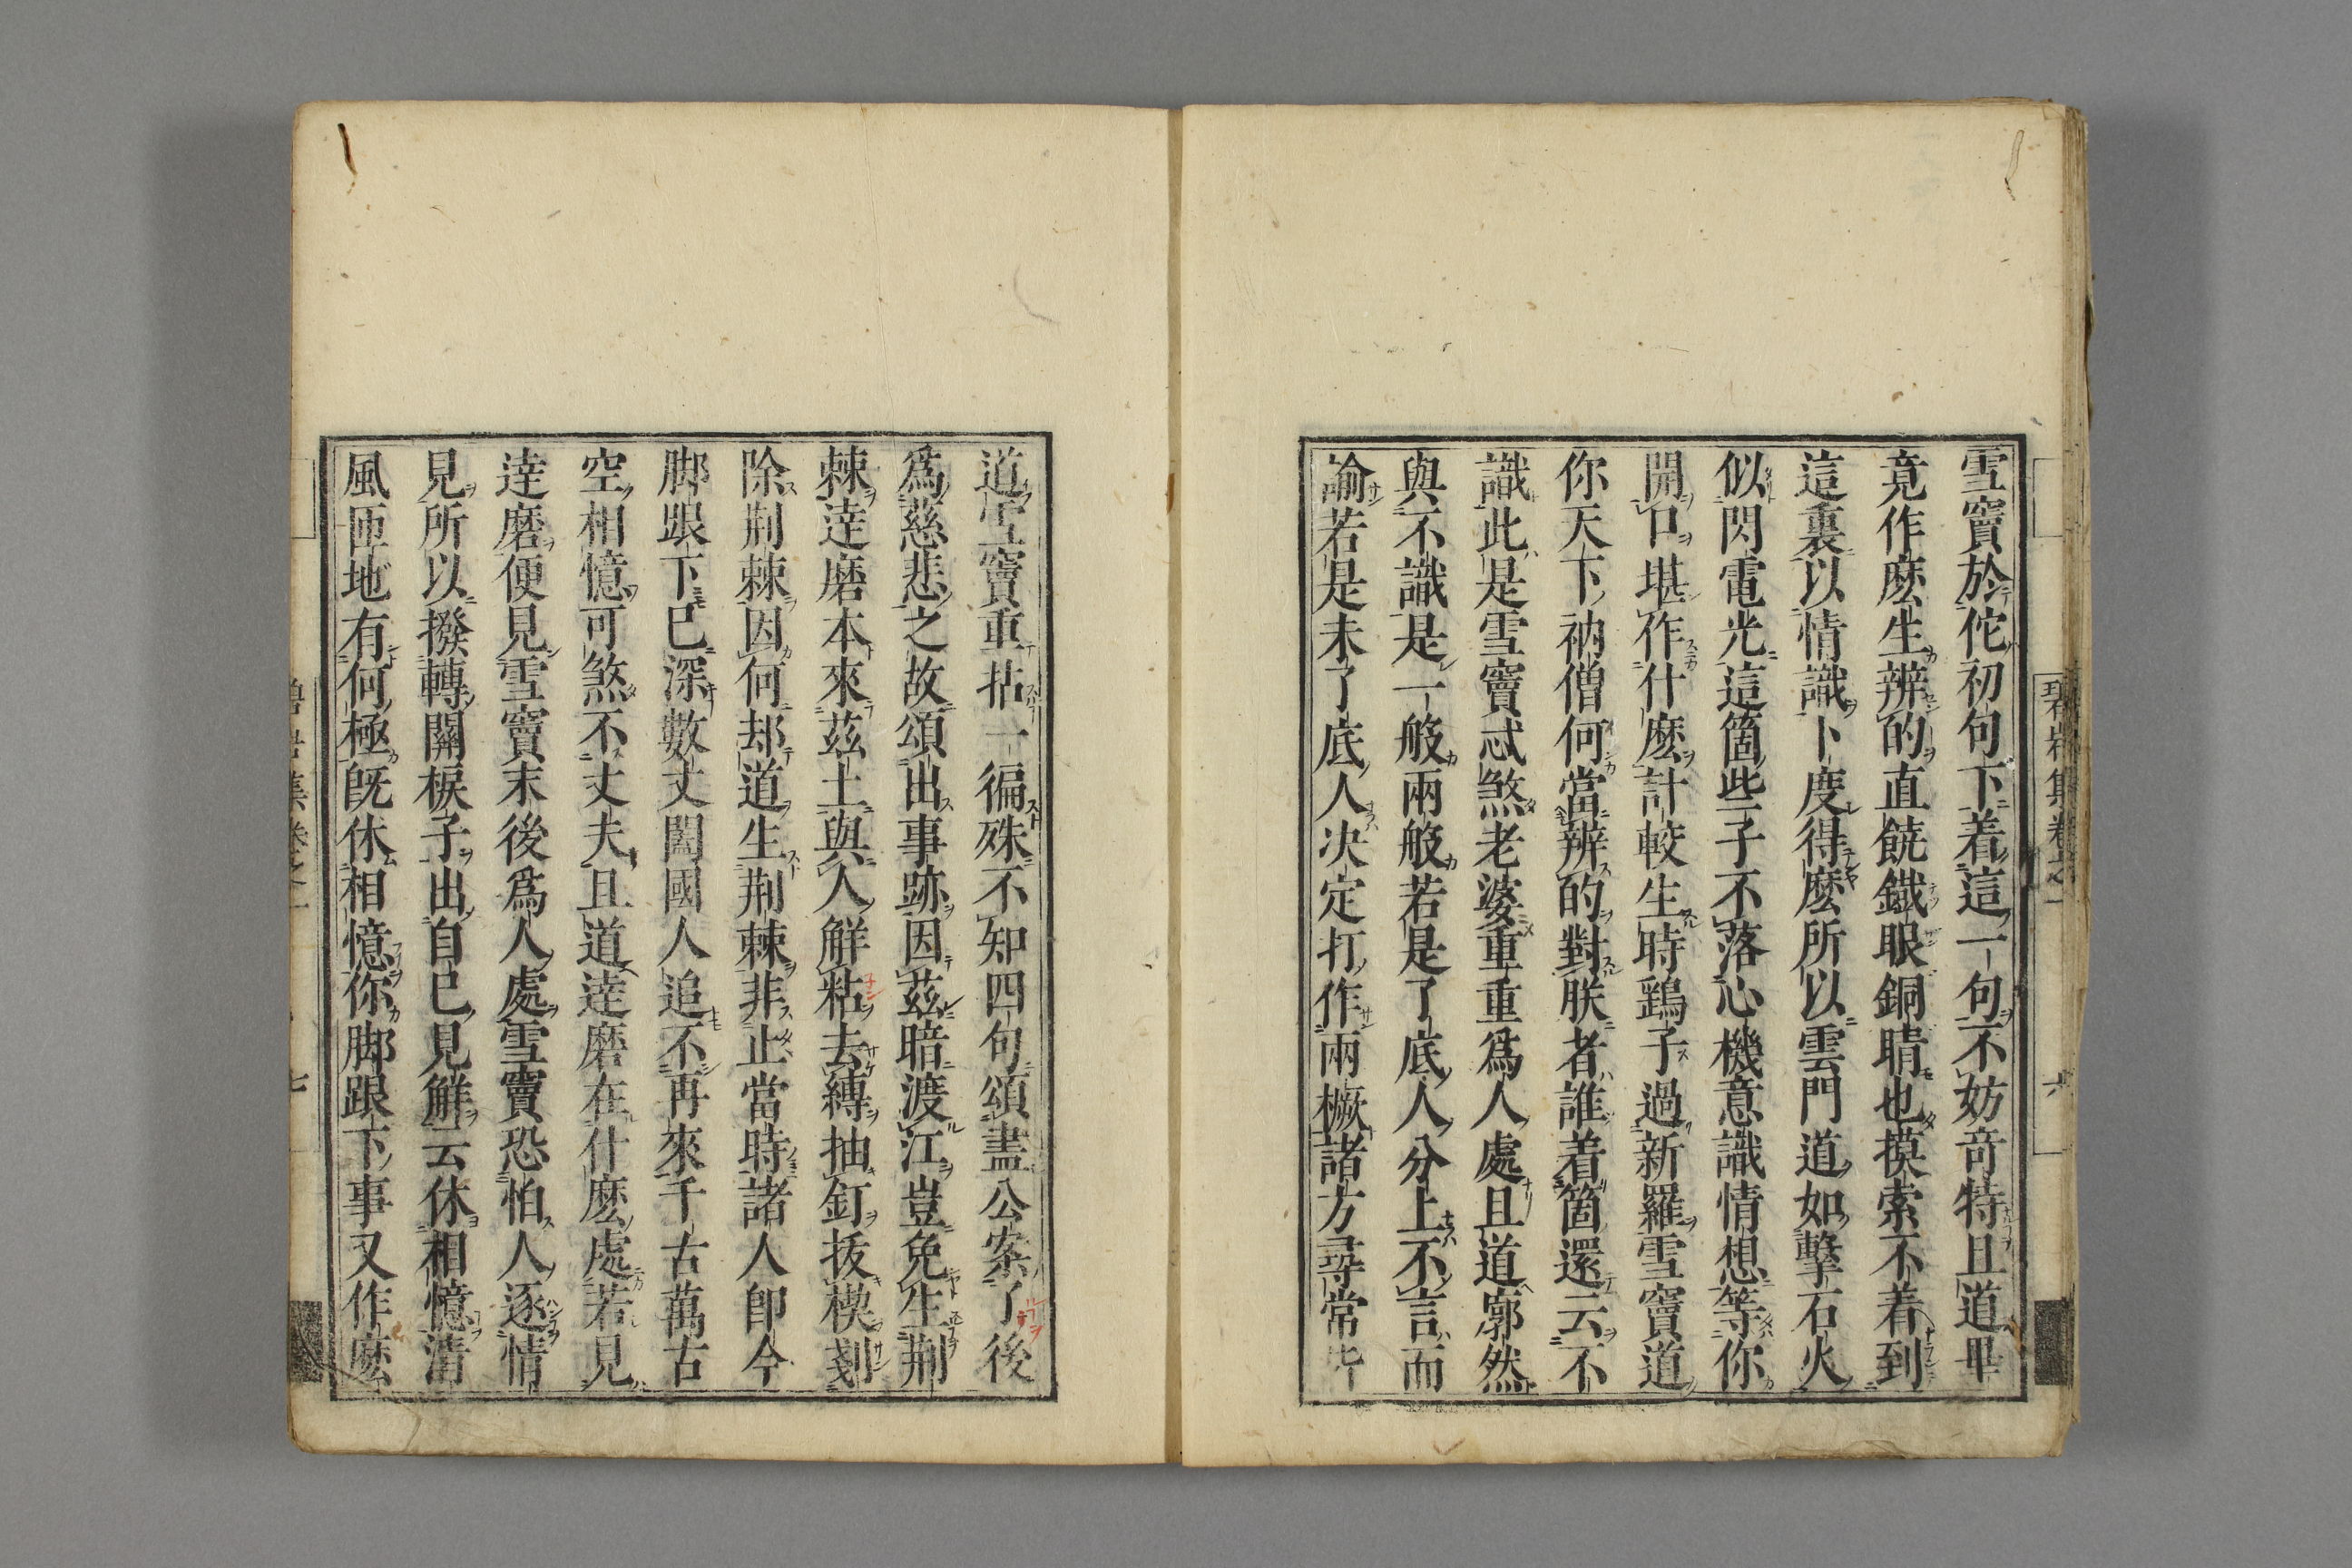 雪竇於佗初句下着這一句不妨奇特且道畢
竟作麽生辨的直饒鐵眼銅睛也摸索不着到
這裏以情識卜度得麽所以雲門道如擊石火
似閃電光這箇些子不落心機意識情想等你
開口堪作什麽計較生時鷂子過新羅雪竇道
你天下衲僧何當辨的對朕者誰着箇還云不
識此是雪竇忒煞老婆重重爲人處且道廓然
與不識是一般兩般若是了底人分上不言而
諭若是未了底人决定打作兩橛諸方尋常皆
碧岩集卷之一
六
道雪竇重拈一徧殊不知四句頌盡公案了後
爲慈悲之故頌出事跡因茲暗渡江豈免生荆
棘達磨本來茲土與人解粘去縛抽釘拔楔剗
除荆棘因何却道生荆棘非止當時諸人即今
脚跟下已深數丈闔國人追不再來千古萬古
空相憶可煞不丈夫且道達磨在什麽處若見
達磨便見雪竇末後爲人處雪竇恐怕人逐情
見所以撥轉關棙子出自己見解云休相憶淸
風匝地有何極旣休相憶你脚跟下事又作麽
碧岩集卷之一
七